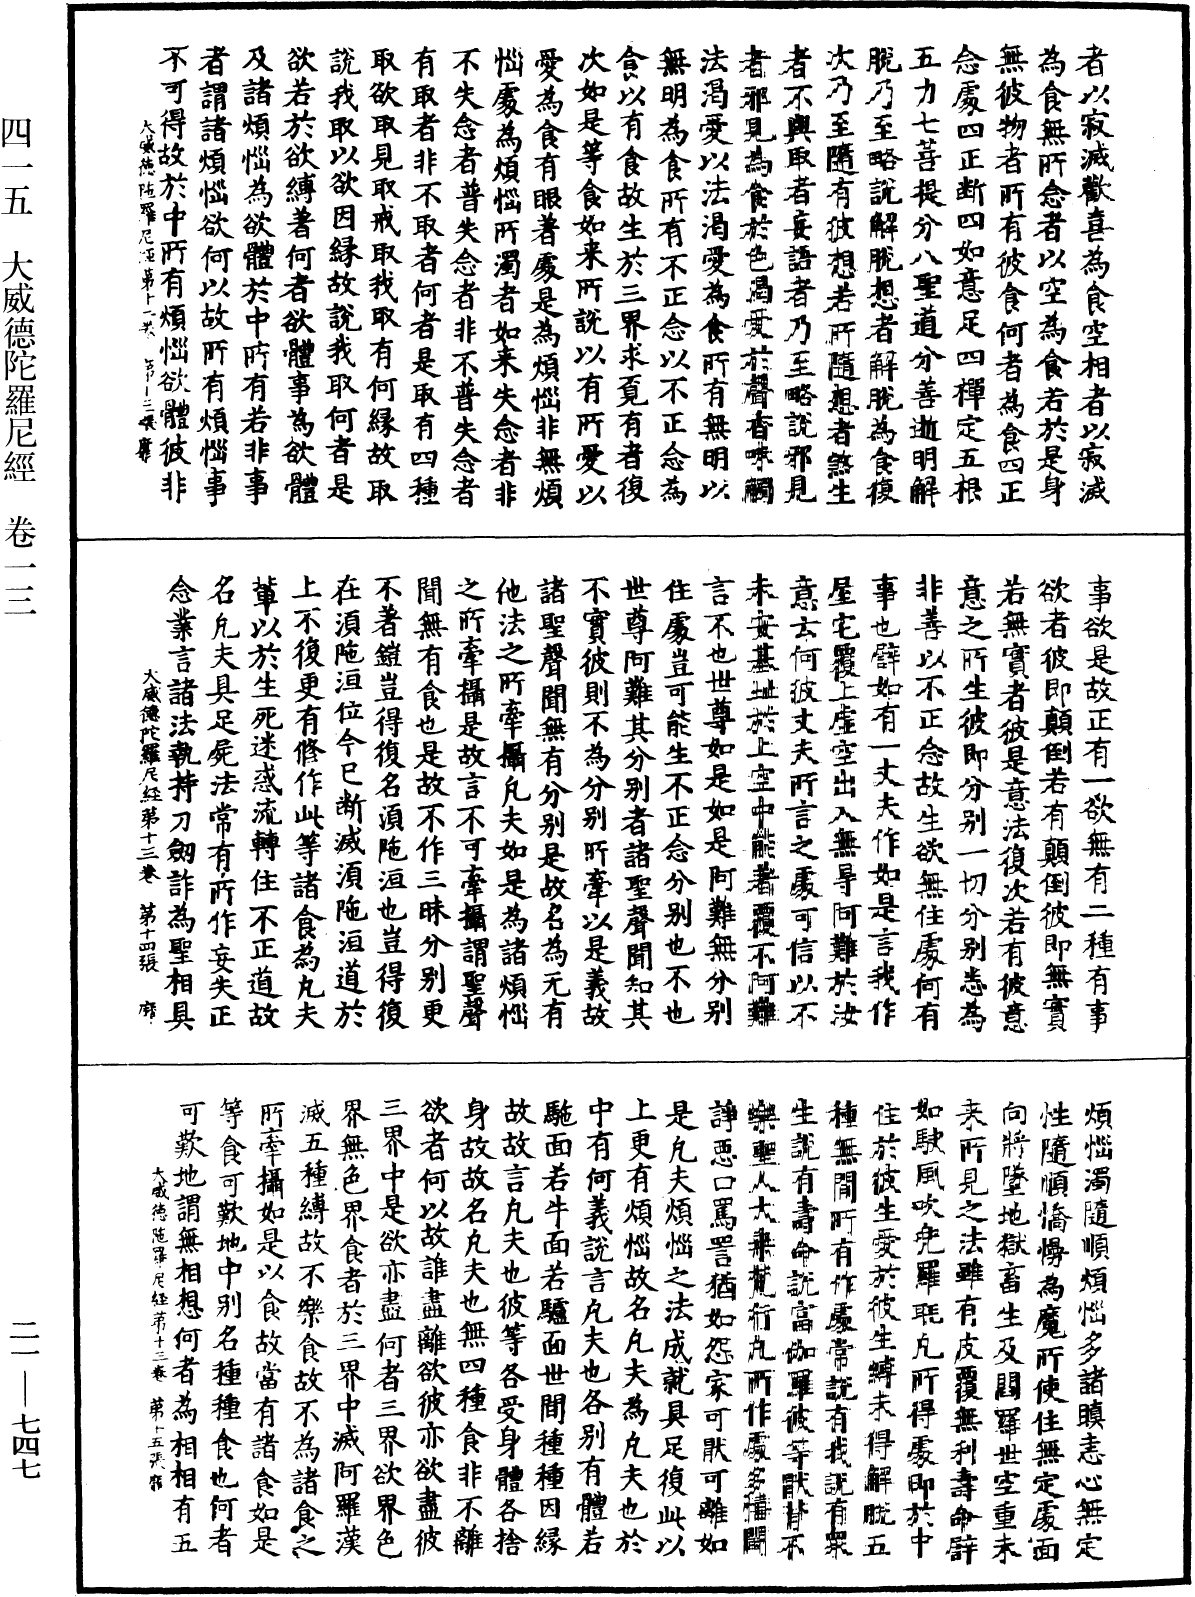 四一五　大威德陀羅尼經　卷一三
二一—七四七
者以寂滅歡喜為食空相者以寂滅
為食無所念者以空為食若於是身
無彼物者所有彼食何者為食四正
念處四正断四如意足四禪定五根
五力七菩提分八聖道分善逝明解
脫乃至略說解脫想者解脫為食復
次乃至隨有彼想若所隨想者煞生
者不與取者妄語者乃至略說邪見
者邪見為食於色渴愛於聲香味觸
法渴愛以法渴愛為食所有無明以
無明為食所有不正念以不正念為
食以有食故生於三界求覓有者復
次如是等食如来所說以有所愛以
愛為食有眼著處是為煩惱非無煩
惱處為煩惱所濁者如来失念者非
不失念者普失念者非不普失念者
有取者非不取者何者是取有四種
取欲取見取戒取我取有何縁故取
說我取以欲因縁故說我取何者是
欲若於欲縛著何者欲體事為欲體
及諸煩惱為欲體於中所有若非事
者謂諸煩惱欲何以故所有煩惱事
不可得故於中所有煩惱欲體彼非
大威德陁羅尼經第十三卷　第十三張　靡
事欲是故正有一欲無有二種有事
欲者彼即顛倒若有顛倒彼即無實
若無實者彼是意法復次若有彼意
意之所生彼即分別一切分別悉為
非善以不正念故生欲無住處何有
事也譬如有一丈夫作如是言我作
屋宅覆上虛空出入無导阿難於汝
意云何彼丈夫所言之處可信以不
未安基址於上空中能著覆不阿難
言不也世尊如是如是阿難無分別
住處豈可能生不正念分別也不也
世尊阿難其分別者諸聖聲聞知其
不實彼則不為分別所牽以是義故
諸聖聲聞無有分別是故名為无有
他法之所牽攝凡夫如是為諸煩惱
之所牽攝是故言不可牽攝謂聖聲
聞無有食也是故不作三昧分別更
不著鎧豈得復名湏陁洹也豈得復
在湏陁洹位今已断滅湏陁洹道於
上不復更有修作此等諸食為凡夫
輩以於生死迷惑流轉住不正道故
名凡夫具足屍法常有所作妄失正
念業言諸法執持刀劒詐為聖相具
大威德陀羅尼經第十三卷　第十四張　靡
煩惱濁隨順煩惱多諸瞋恚心無定
性隨順憍慢為魔所使住無定處面
向將墮地獄畜生及閻羅世空重未
来所見之法雖有皮覆無利壽命辟
如駛風吹兜羅毦凡所得處即於中
住於彼生愛於彼生縛未得解脫五
種無間所有作處常說有我說有眾
生說有壽命說富伽羅彼等猒背不
樂聖人大乘梵行凡所作處多搆鬪
諍惡口罵詈猶如怨家可猒可離如
是凡夫煩惱之法成就具足復此以
上更有煩惱故名凡夫為凡夫也於
中有何義說言凡夫也各別有體若
駞面若牛面若驢面世間種種因縁
故故言凡夫也彼等各受身體各捨
身故故名凡夫也無四種食非不離
欲者何以故誰盡離欲彼亦欲盡彼
三界中是欲亦盡何者三界欲界色
界無色界食者於三界中滅阿羅漢
滅五種縛故不樂食故不為諸食之
所牽攝如是以食故當有諸食如是
等食可歎地中別名種種食也何者
可歎地謂無相想何者為相相有五
大威德陁羅尼經第十三卷　第十五張　靡